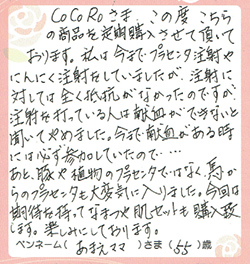 CoCoRoさま この度 こちら
の商品を定期購入させて頂いて
おります。私は今までプラセンタ注射や
にんにく注射をしていましたが、注射に
対しては全く抵抗がなかったのですが
注射を打っている人は献血ができないと
聞いてやめました。今まで献血がある時
には必ず参加していたので・・・
あと、豚や植物のプラセンタではなく、馬か
らのプラセンタも大変気に入りました。今回は
期待を持ってなまつや肌セットも購入致
します。楽しみにしております。
ペンネーム(あまえママ)さま(55)歳